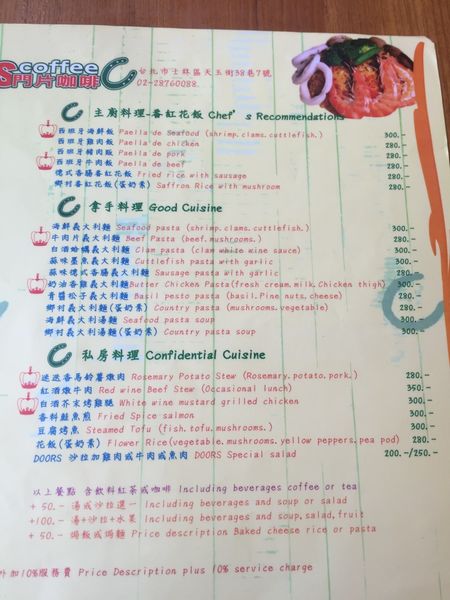 coffee
S門片咖啡
台北市士林區天玉街38巷7號
02-28760088.
主廚料理-番紅花飯 Chef's Recommendations
西班牙海鮮飯 Paella de Seafood (shrimp.clams.cuttlefish.) 300.-
西班牙雞肉飯 Paella de chicken 280.-
西班牙豬肉飯 Paella de pork 280.-
西班牙牛肉飯 Paella de beef 280.-
德式香腸番紅花飯 Fried rice with sausage
鄉村番紅花飯(蛋奶素) Saffron Rice with mushroom 280.-
拿手料理 Good Cuisine
海鮮義大利麵 Seafood pasta (shrimp.clams.cuttlefish.) 300.-
牛肉片義大利麵 Beef Pasta (beef.mushrooms.) 280.-
白酒蛤蠣義大利麵 Clam pasta (clam white wine sauce) 300.-
蒜味墨魚義大利麵 Cuttlefish pasta with garlic
蒜味德式香腸義大利麵 Sausage pasta with garlic 280.-
奶油香雞義大利麵Butter Chicken Pasta(fresh cream.milk.Chicken thigh) 300.-
青醬松子義大利麵 Basil pesto pasta (basil.Pine nuts.cheese) 280.-
鄉村義大利麵(蛋奶素) Country pasta (mushrooms.vegetable) 280.-
海鮮義大利湯麵 Seafood pasta soup 300.-
鄉村義大利湯麵(蛋奶素) Country pasta soup 300.-
私房料理 Confidential Cuisine
迷迭香馬鈴薯燉肉 Rosemary Potato Stew (Rosemary.potato.pork.) 280.-
紅酒燉牛肉 Red wine Beef Stew (Occasional lunch) 350.-
白酒芥末烤雞腿 White wine mustard grilled chicken 300.-
香料鮭魚煎 Fried Spice salmon 300.-
豆腐烤魚 Steamed Tofu (fish.tofu.mushrooms.) 280.-
花飯(蛋奶素) Flower Rice(vegetable.mushrooms.yellow peppers.pea pod) 280.-
DOORS 沙拉加雞肉或牛肉或魚肉 DOORS Special salad 200.-/250.-
以上餐點 含飲料紅茶或咖啡 Including beverages coffee or tea
+ 50.- 湯或沙拉選一 Including beverages and soup or salad
+100.- 湯+沙拉+水果 Including beverages and soup.salad.fruit
+ 50.- 焗飯或焗麵 Price description Baked cheese rice or pasta
外加10%服務費 Price Description plus 10% service charge